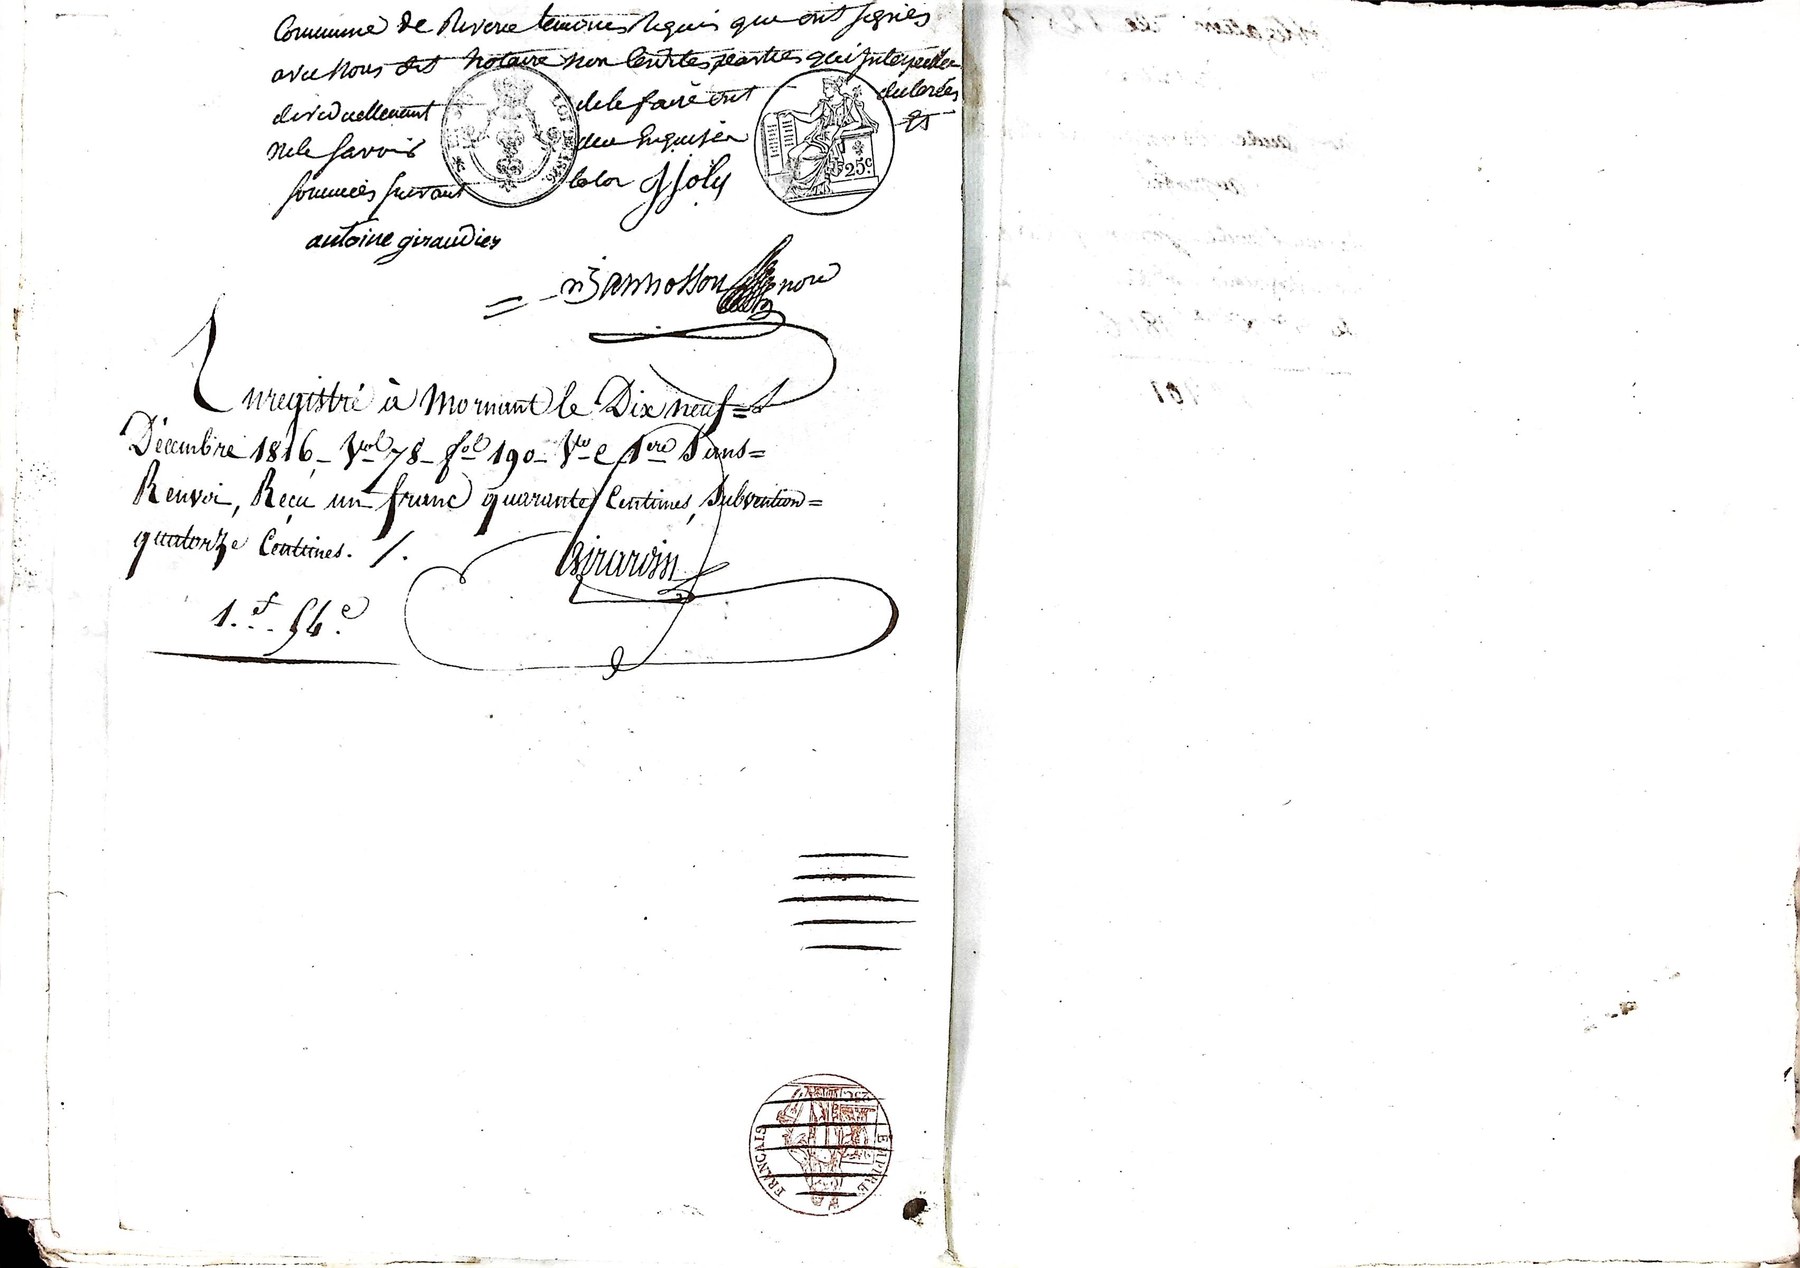 Commune de Riverie temoins requis qui ont signés
avec nous dit notaire non lesdites parties qui interpellées
de le faire ont declarées
ne le savoir de ce enquises et
sommées suivant la loi J Joly
antoine giraudier
Jannosson nore
Enregistré à Mornant le Dix neuf =
Décembre 1816, Vol 78 fol 190 Vo C 1ere Sans =
Renvoi, Reçu un franc quarante Centimes, Subvention =
quatorze Centimes. /.
Girardin
1.f 54c.
LOI DE 1816
25c.
25C.
EMPIRE
FRANÇAIS
101